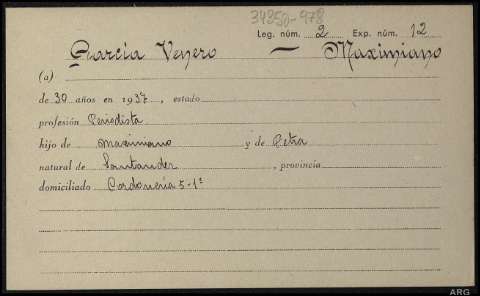 34350-978
Leg. núm. 2 Exp. núm. 12
García Venero — Maximiano
(a)
de 30 años en 1937, estado
profesión Periodista
hijo de Maximiano y de Petra
natural de Santander, provincia
domiciliado Cordonería 5-1º
ARG